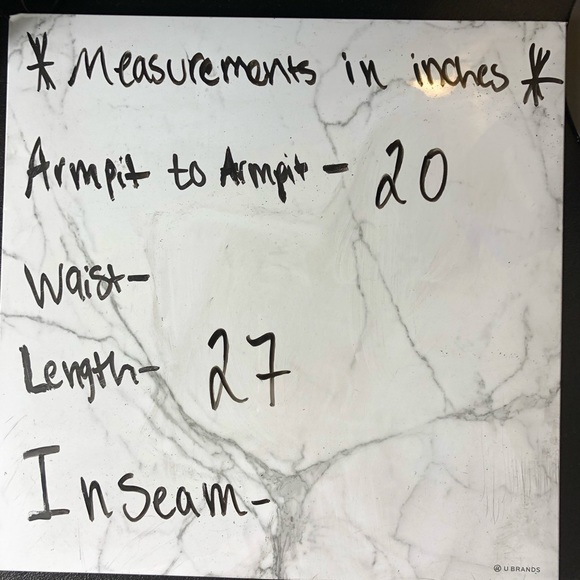 * Measurements in inches *
Armpit to Armpit - 20
Waist-
Length- 27
Inseam-
U BRANDS